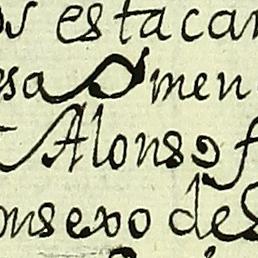 os estacan
esa Smen
Alonso f
onsexo deS